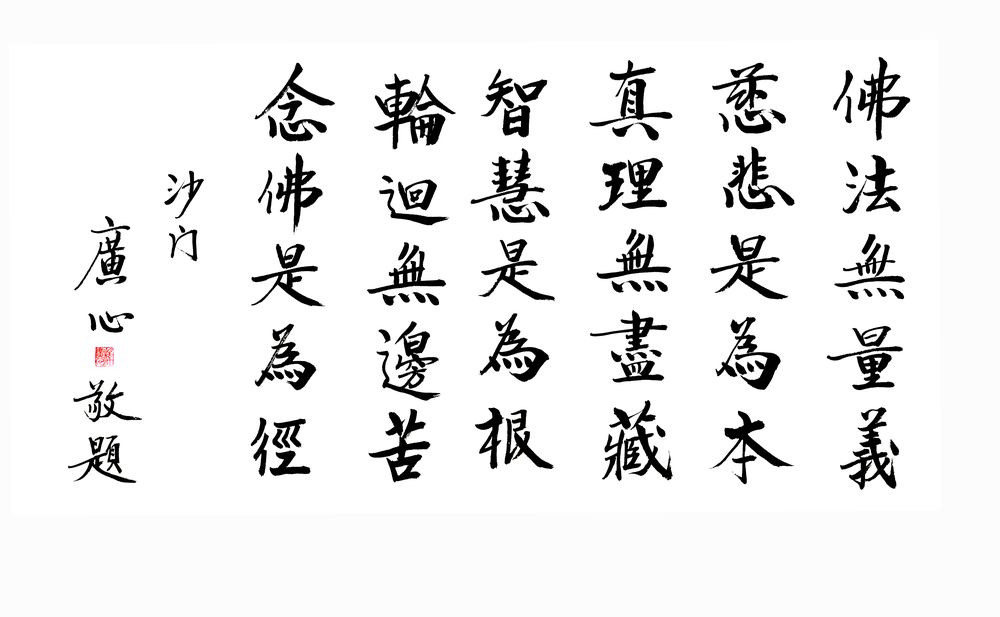 佛法無量義
慈悲是為本
真理無盡藏
智慧是為根
輪迴無邊苦
念佛是為徑
沙门
廣心敬題